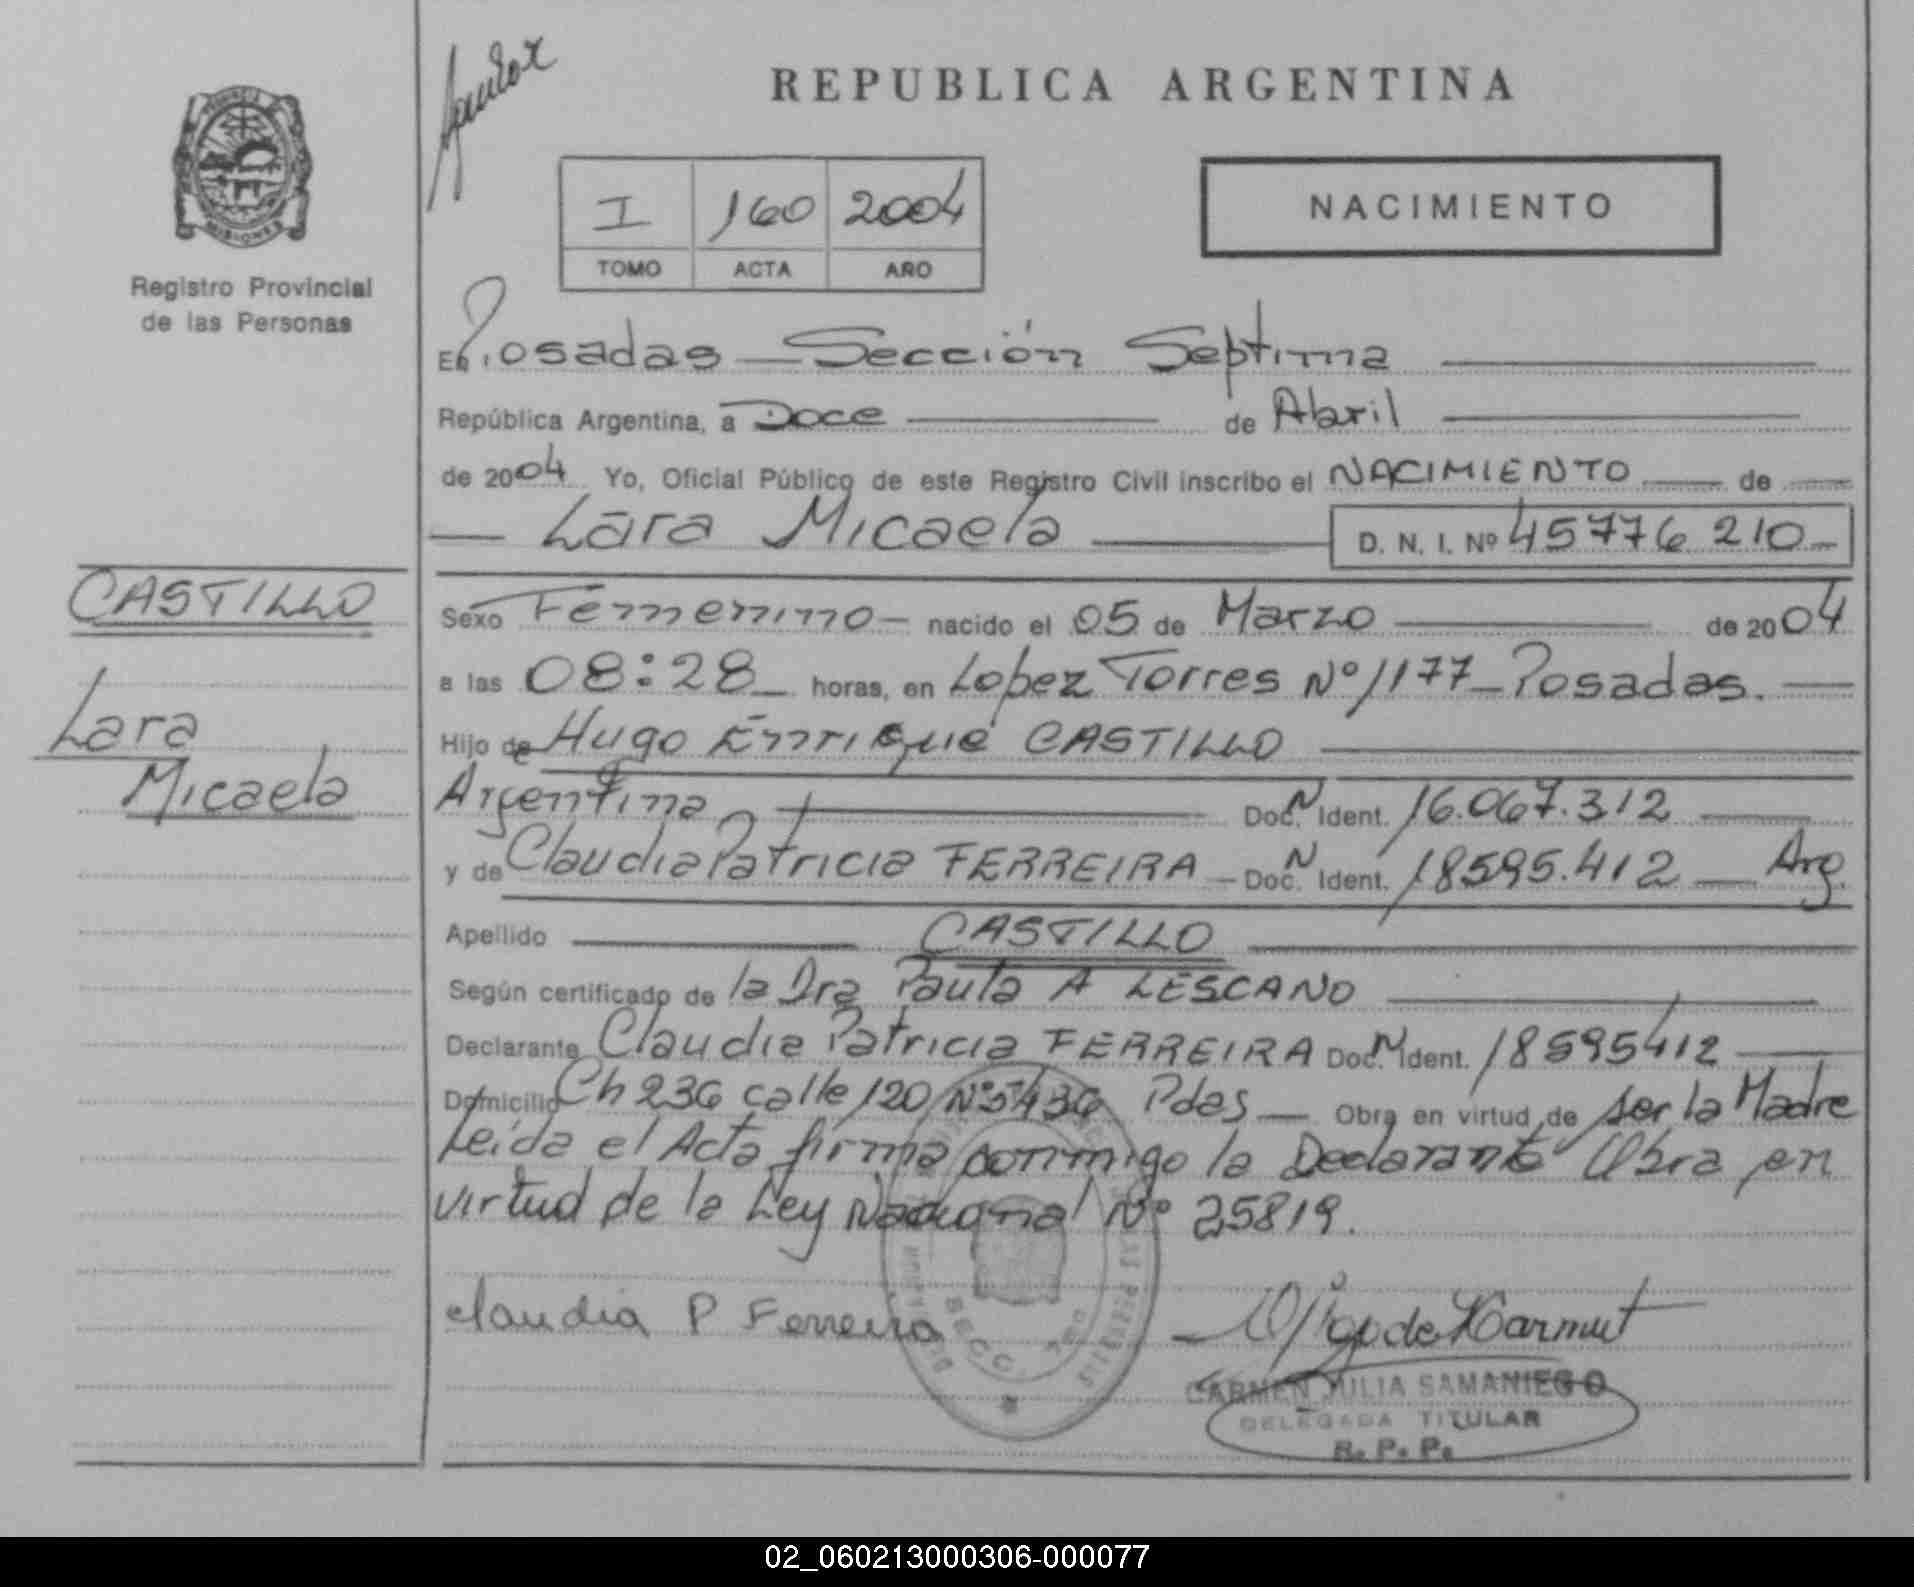 REPUBLICA ARGENTINA
PROVINCIA
MISIONES
Registro Provincial
de las Personas
I 160 2004
TOMO ACTA AÑO
NACIMIENTO
En Posadas — Sección Septima
República Argentina, a Doce de Abril
de 2004 Yo, Oficial Público de este Registro Civil inscribo el NACIMIENTO de
Lara Micaela D. N. I. Nº 45776 210
CASTILLO
Lara
Micaela
Sexo Femenino nacido el 05 de Marzo de 2004
a las 08:28 horas, en Lopez Torres Nº 1177 — Posadas.
Hijo de Hugo Enrique CASTILLO
Argentina Doc. N Ident. 16.067.312
y de Claudia Patricia FERREIRA — Doc. N Ident. 18595.412 — Arg.
Apellido CASTILLO
Según certificado de la Dra Paula A LESCANO
Declarante Claudia Patricia FERREIRA Doc. N Ident. 18595412
Domicilio Ch 236 calle 120 Nº 5436 Pdas — Obra en virtud de ser la Madre
Leída el Acta firma conmigo la Declarante Obra en
virtud de la Ley Nacional Nº 25819.
Claudia P Ferreira
CARMEN JULIA SAMANIEGO
DELEGADA TITULAR
R. P. P.
02_060213000306-000077